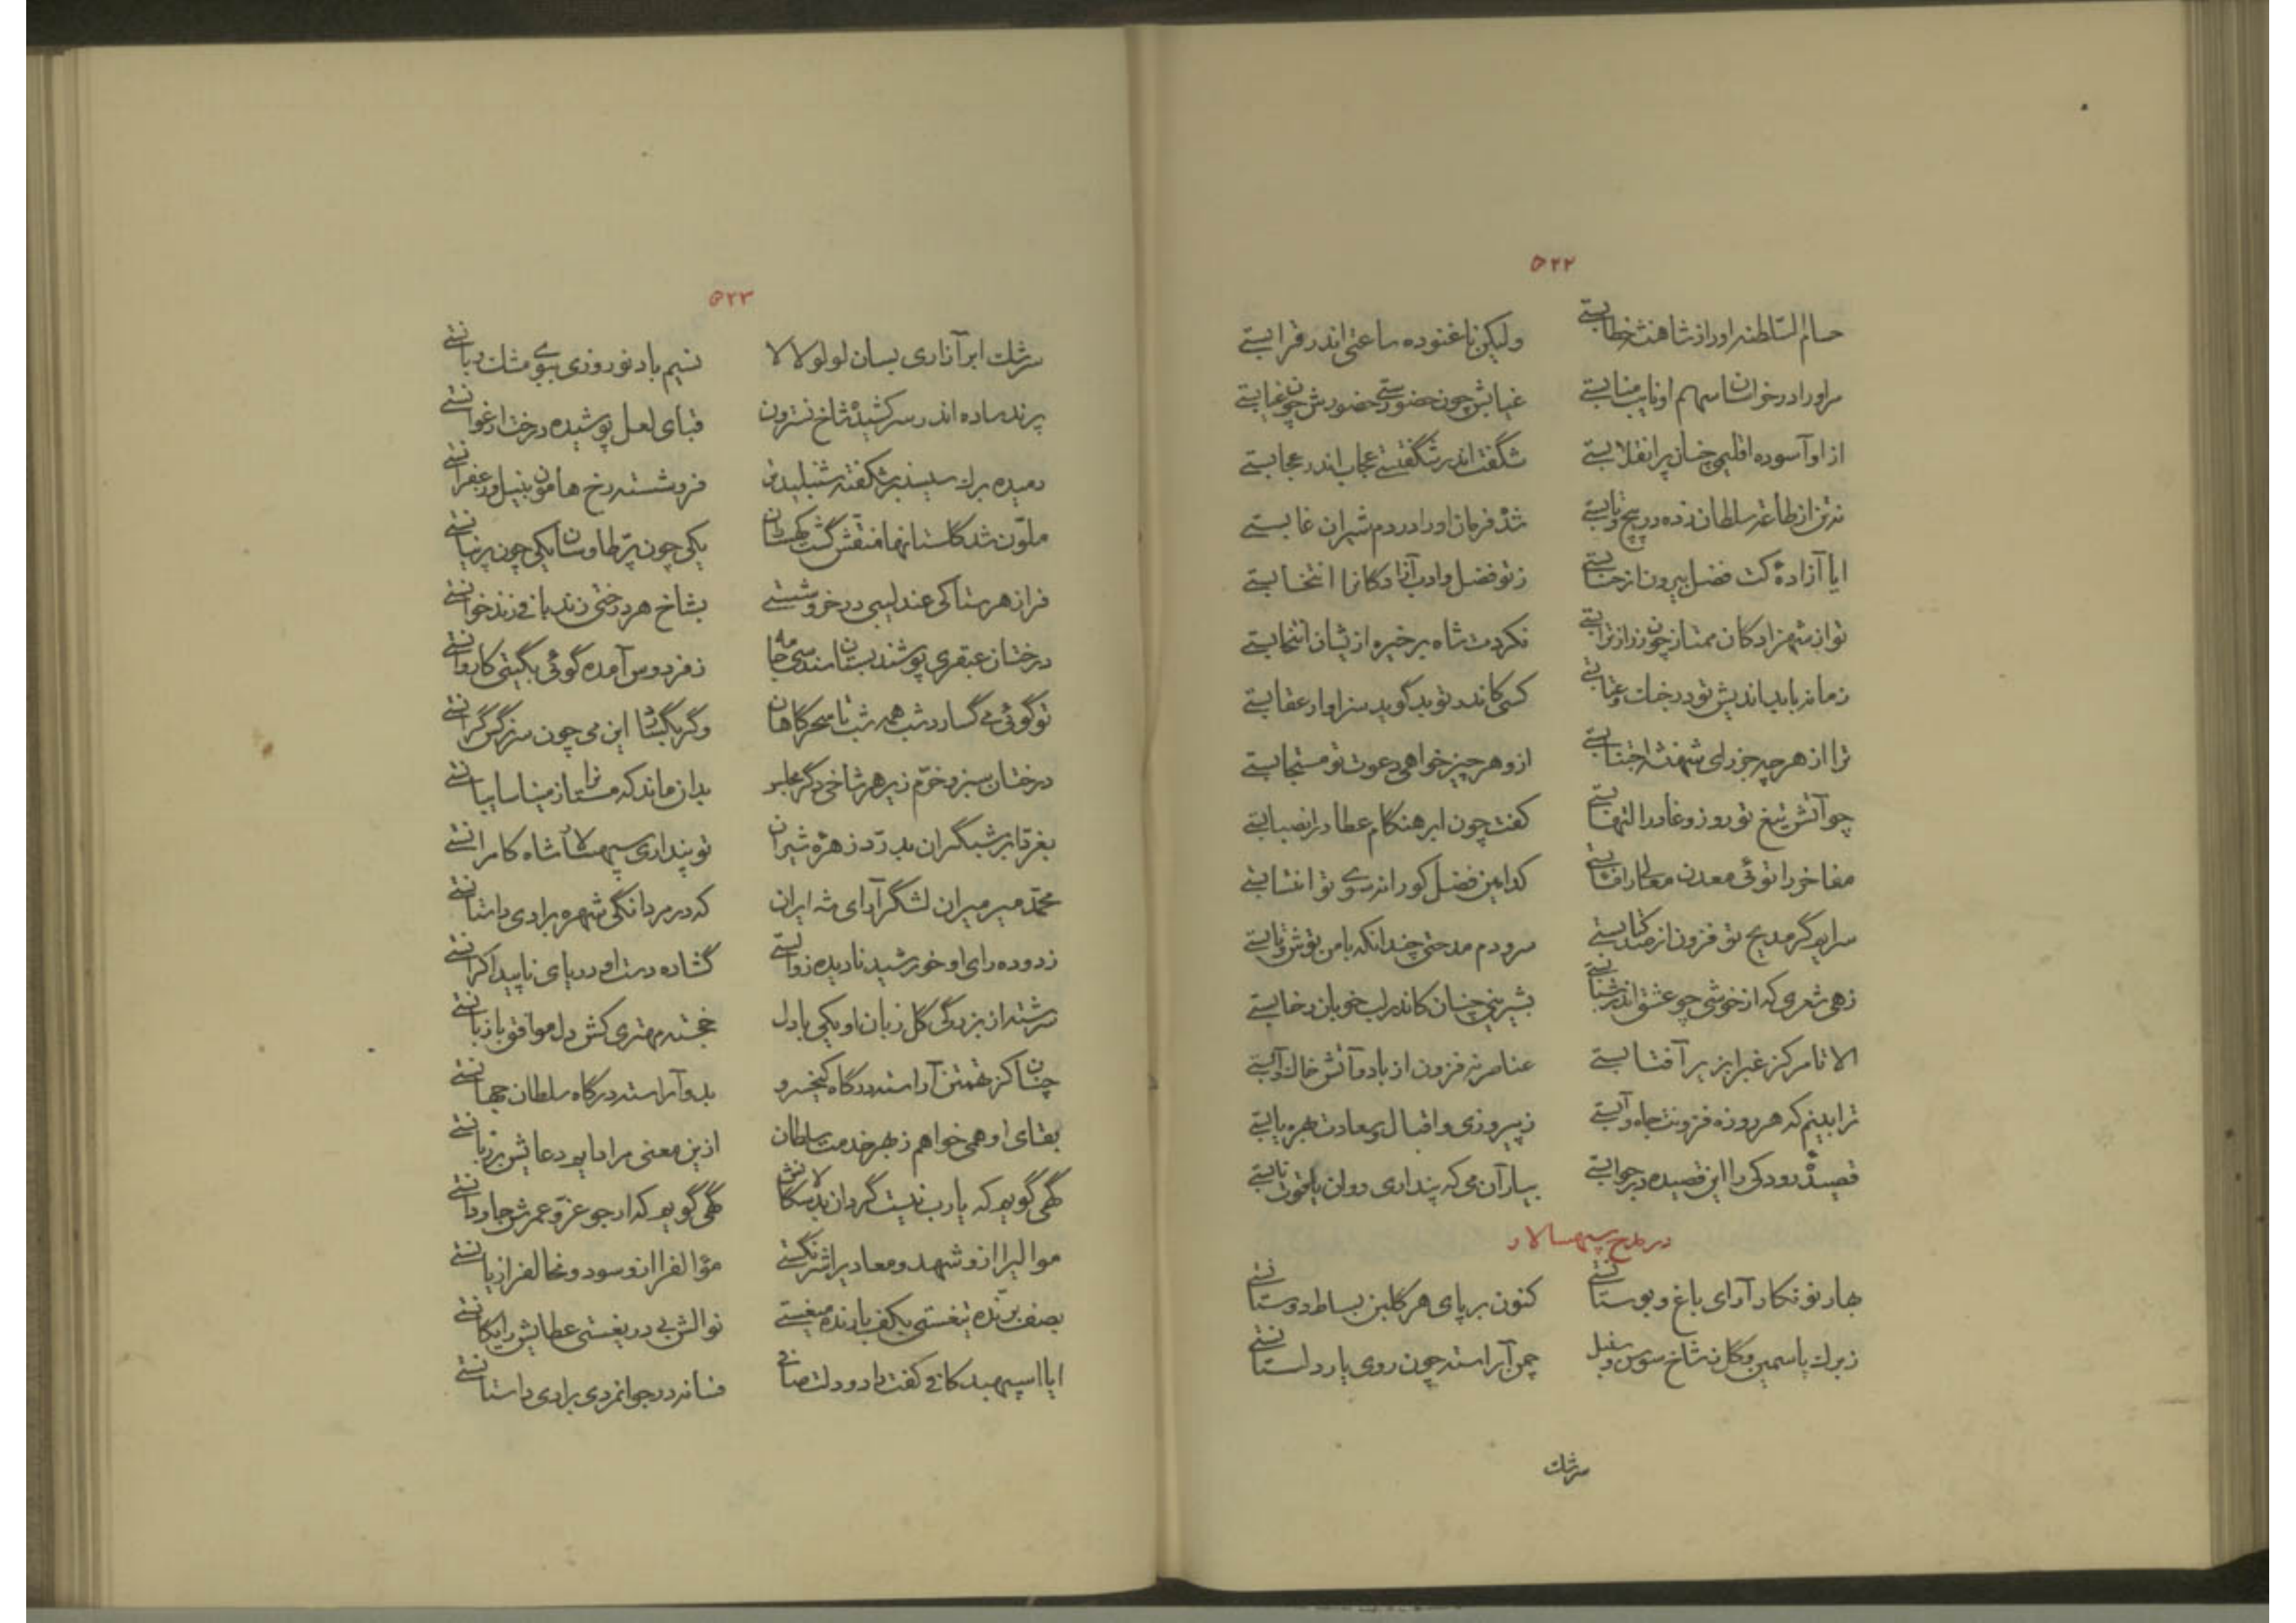 ۵۲۲
حسام السّلطنه او را از شاهنشه خطابستی ولیکن ناغنوده ساعتی اندر قرابستی
مر او را در خراسان اسم او نایب منابستی غیابش چون حضورستی حضورش چون غیابستی
از او آسوده اقلیمی چنان پر انقلابستی شگفت اندر شگفتستی عجاب اندر عجابستی
نه تن از طاعت سلطان زده در پیچ و تابستی شده فرمان او را در دم شیران غابستی
ایا آزادهٔ کت فضل بیرون از حسابستی ز تو فضل و ادب آزادکانرا انتخابستی
تو از شهزادکان ممتاز چون زر از ترابستی نکردت شاه بر خیره ازیشان انتخابستی
زمانه با بداندیش تو در خشم و عتابستی کسی کاندر تو بد گوید سزاوار عقابستی
ترا از هر چه جز رای شهنشه اجتنابستی ازو هر چیز خواهی دعوت تو مستجابستی
چو آتش تیغ تو روز وغا در التهابستی کفت چون ابر هنکام عطا در انصبابستی
مفاخر را توئی معدن معالی را مآبستی کدامین فضل کو را نه سوی تو انتسابستی
سرایم گر مدیح تو فزون از صد کتابستی سرودم مدحتی چندانکه با من توش و تابستی
زهی شعری که از خوشی چو عشق اندر شبابستی بشیرینی چنان کاندر لب خوبان رضابستی
الا تا مرکز غبرا بزیر آفتابستی عناصر نه فزون از باد و آتش خاک و آبستی
ترا بینم که هر روزه فزونت جاه و آبستی ز پیروزی و اقبال و سعادت بهره یابستی
قصیدهٔ رودکی را این قصیده در جوابستی بیار آن می که پنداری روان یاقوت نابستی
در مدح سپهسالار
بهار نو نکار آرای باغ و بوستانستی کنون بر پای هر کلبن بساط دوستانستی
ز برک یاسمین و کل ز شاخ سوسن و سنبل چمن آراسته چون روی یار دلستانستی
سرشک
۵۲۳
سرشک ابر آزاری بسان لولو لالا نسیم باد نوروزی ببوی مشک و بانستی
پرند ساده اندر سر کشیده شاخ نسترون قبای لعل پوشیده درخت ارغوانستی
دمیده برک سیسنبر شکفته شنبلیدش فروشسته رخ هامون بنیل و زعفرانستی
ملوّن شد کلستانها منقّش گشت کهستان یکی چون پرّ طاوسان یکی چون پرنیانستی
فراز هر ستاکی عندلیبی در خروشستی بشاخ هر درختی زند بافی زند خوانستی
درختان عبقری پوشند بستان سندسی جامه ز فردوس آمده گوئی بگیتی کاروانستی
تو گوئی می گسارد شب همه شب تا سحرگاهان وگر نگشاد این می چون سر نرگس گرانستی
درختان سبز و خرّم زیر هر شاخی دگر مجلس بدان ماند که مستانرا ز مینا سایبانستی
بغرّد ابر شبگیران بدرّد زهرهٔ شیران تو پنداری سپهسالار شاه کامرانستی
محمّد میر میران لشگر آرای شه ایران که در مردانگی شهره برادی داستانستی
زدوده رای او خورشید نادیده زوالستی گشاده دست او دریای ناپیدا کرانستی
سرشته از بزرگی گل زبان او یکی با دل خجسته مهتری کش دل موافق با زبانستی
چنان کز تهمتن آراسته درگاه کیخسرو بدو آراسته درکاه سلطان جهانستی
بقای او همی خواهم ز بهر خدمت سلطان ازین معنی مرا دایم دعایش بر زبانستی
گهی گویم که یارب نیست گردان بدسکالانش گهی گویم که ارجو عزّ و عمرش جاودانستی
موالیرا ازو شهد و معادیرا شرنگستی مؤالفرا ازو سود و مخالفرا زیانستی
بصف برّنده تیغستی بکف بارنده میغستی نوالش بی دریغستی عطایش رایکانستی
ایا اسپهبد کافی کفت راد و دلت صافی فسانه در جوانمردی برادی داستانستی